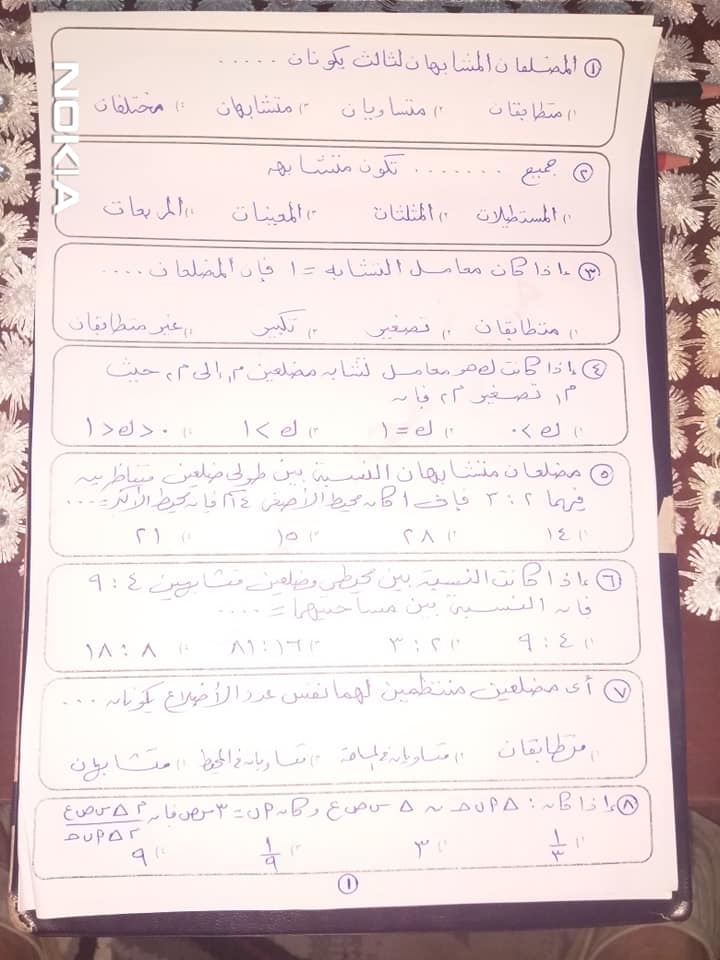 ① المضلعان المشابهان لثالث يكونان .....
متطابقان متساويان متشابهان مختلفان
② جميع ....... تكون متشابهه
المستطيلات المثلثات المعينات المربعات
③ إذا كان معامل التشابه = ١ فإن المضلعان ....
متطابقان تصغير تكبير غير متطابقان
④ إذا كانت ك هو معامل تشابه مضلعين م١ إلى م٢ حيث
م١ تصغير م٢ فإن
ك > ٠ ك = ١ ك > ١ ٠ < ك < ١
⑤ مضلعان متشابهان النسبة بين طولى ضلعين متناظرين
فيهما ٢ : ٣ فإذا كان محيط الأصغر ١٤ فإن محيط الأكبر = ...
١٤ ٢٨ ١٥ ٢١
⑥ إذا كانت النسبة بين محيطى مضلعين متشابهين ٤ : ٩
فإن النسبة بين مساحتيهما = ....
٤ : ٩ ٢ : ٣ ١٦ : ٨١ ٨ : ١٨
⑦ أى مضلعين منتظمين لهما نفس عدد الأضلاع يكونان ...
متطابقان متساويان فى المساحة متساويان فى المحيط متشابهان
⑧ إذا كان : △ ا ب ج ~ △ س ص ع وكان ا ب = ٣ س ص فإن م △ س ص ع / م △ ا ب ج
١/٣ ٣ ١/٩ ٩
①
NOKIA